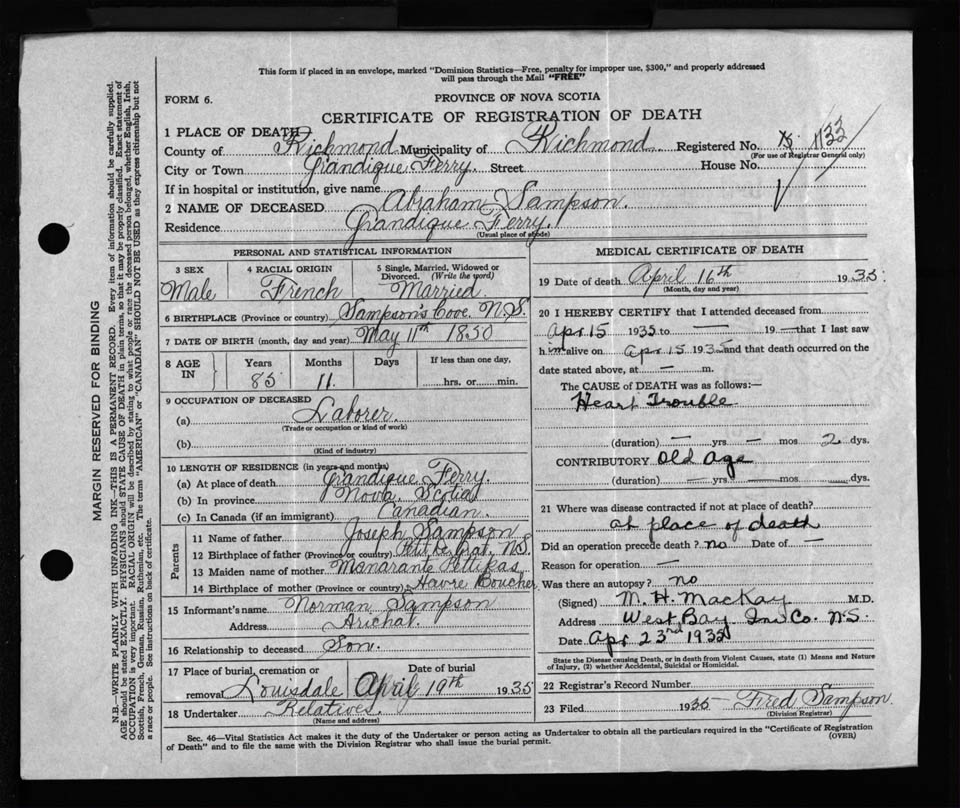 This form if placed in an envelope, marked "Dominion Statistics—Free, penalty for improper use, $300," and properly addressed
will pass through the Mail "FREE"
FORM 6.
PROVINCE OF NOVA SCOTIA
CERTIFICATE OF REGISTRATION OF DEATH
1 PLACE OF DEATH
County of Richmond Municipality of Richmond Registered No. 1133
(For use of Registrar General only)
City or Town Grandique Ferry. Street House No.
If in hospital or institution, give name
2 NAME OF DECEASED Abraham Sampson.
Residence Grandique Ferry.
(Usual place of abode)
PERSONAL AND STATISTICAL INFORMATION
3 SEX 4 RACIAL ORIGIN 5 Single, Married, Widowed or
Divorced. (Write the word)
Male French Married.
6 BIRTHPLACE (Province or country) Sampson's Cove. N.S.
7 DATE OF BIRTH (month, day and year) May 11th 1850
8 AGE IN Years Months Days If less than one day,
85 11. hrs. or min.
9 OCCUPATION OF DECEASED
(a) Laborer.
(Trade or occupation or kind of work)
(b)
(Kind of industry)
10 LENGTH OF RESIDENCE (in years and months)
(a) At place of death Grandique Ferry.
(b) In province Nova Scotia
(c) In Canada (if an immigrant) Canadian.
Parents
11 Name of father Joseph Sampson
12 Birthplace of father (Province or country) Petit de Grat, N.S.
13 Maiden name of mother Monarante Pettipas
14 Birthplace of mother (Province or country) Havre Boucher
15 Informant's name Norman Sampson
Address Arichat.
16 Relationship to deceased Son.
17 Place of burial, cremation or Date of burial
removal Louisdale April 19th 1935
18 Undertaker Relatives.
(Name and address)
MEDICAL CERTIFICATE OF DEATH
19 Date of death April 16th 1935
(Month, day and year)
20 I HEREBY CERTIFY that I attended deceased from
Apr 15 1935 to — 19 — that I last saw
him alive on Apr 15 1935 and that death occurred on the
date stated above, at — m.
The CAUSE of DEATH was as follows:—
Heart Trouble
(duration) — yrs — mos 2 dys.
CONTRIBUTORY Old Age
(duration) — yrs — mos dys.
21 Where was disease contracted if not at place of death?
at place of death
Did an operation precede death? no Date of —
Reason for operation —
Was there an autopsy? no
(Signed) M. H. MacKay M.D.
Address West Bay Inv Co. N.S
Date Apr 23rd 1935
State the Disease causing Death, or in death from Violent Causes, state (1) Means and Nature
of Injury, (2) whether Accidental, Suicidal or Homicidal.
22 Registrar's Record Number
23 Filed 1935 Fred Sampson
(Division Registrar)
Sec. 46—Vital Statistics Act makes it the duty of the Undertaker or person acting as Undertaker to obtain all the particulars required in the "Certificate of Registration
of Death" and to file the same with the Division Registrar who shall issue the burial permit. (OVER)
MARGIN RESERVED FOR BINDING
N.B.—WRITE PLAINLY WITH UNFADING INK—THIS IS A PERMANENT RECORD. Every item of information should be carefully supplied.
AGE should be stated EXACTLY. PHYSICIANS should STATE CAUSE OF DEATH in plain terms, so that it may be properly classified. Exact statement of
OCCUPATION is very important. RACIAL ORIGIN will be described by stating to what people or race the deceased person belonged, whether English, Irish,
Scottish, French, German, Russian, Ruthenian, etc. The terms "AMERICAN" or "CANADIAN" SHOULD NOT BE USED as they express citizenship but not
a race or people. See instructions on back of certificate.